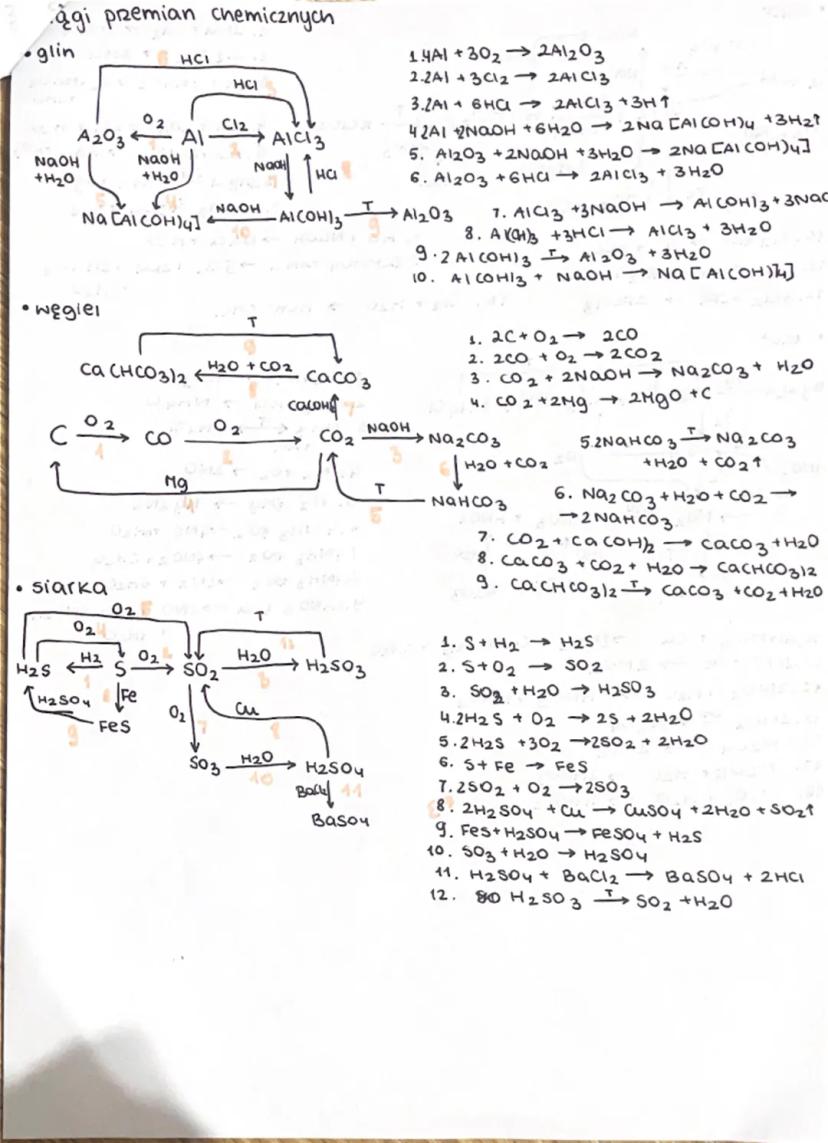 .ągi przemian chemicznych
• glin
HCl
HCl
A2O3 O2 Al Cl2 AlCl3
1 2
NaOH +H2O NaOH +H2O NaOH HCl
5 4 7 8
Na[Al(OH)4] NaOH Al(OH)3 T Al2O3
10 9
1.4Al + 3O2 → 2Al2O3
2.2Al + 3Cl2 → 2AlCl3
3.2Al + 6HCl → 2AlCl3 + 3H↑
4.2Al + 2NaOH + 6H2O → 2Na[Al(OH)4 + 3H2↑
5. Al2O3 + 2NaOH + 3H2O → 2Na[Al(OH)4]
6. Al2O3 + 6HCl → 2AlCl3 + 3H2O
7. AlCl3 + 3NaOH → Al(OH)3 + 3NaC
8. Al(OH)3 + 3HCl → AlCl3 + 3H2O
9. 2Al(OH)3 T→ Al2O3 + 3H2O
10. Al(OH)3 + NaOH → Na[Al(OH)4]
• węgiel
T
9
Ca(HCO3)2 H2O + CO2 CaCO3
8
Ca(OH)2 7
C O2 CO O2 CO2 NaOH Na2CO3
1 2 3
6 H2O + CO2
Mg T NaHCO3
4 5
1. 2C + O2 → 2CO
2. 2CO + O2 → 2CO2
3. CO2 + 2NaOH → Na2CO3 + H2O
4. CO2 + 2Mg → 2MgO + C
5.2NaHCO3 T→ Na2CO3
+H2O + CO2↑
6. Na2CO3 + H2O + CO2 →
→ 2NaHCO3
7. CO2 + Ca(OH)2 → CaCO3 + H2O
8. CaCO3 + CO2 + H2O → Ca(HCO3)2
9. Ca(HCO3)2 T→ CaCO3 + CO2 + H2O
• siarka
O2 5
O2 4 T
H2S H2 S O2 SO2 H2O H2SO3
1 2 3
H2SO4 Fe O2 7 Cu
9 FeS 8
SO3 H2O H2SO4
10
BaCl2 11
BaSO4
1. S + H2 → H2S
2. S + O2 → SO2
3. SO2 + H2O → H2SO3
4.2H2S + O2 → 2S + 2H2O
5.2H2S + 3O2 → 2SO2 + 2H2O
6. S + Fe → FeS
7.2SO2 + O2 → 2SO3
8. 2H2SO4 + Cu → CuSO4 + 2H2O + SO2↑
9. FeS + H2SO4 → FeSO4 + H2S
10. SO3 + H2O → H2SO4
11. H2SO4 + BaCl2 → BaSO4 + 2HCl
12. H2SO3 T→ SO2 + H2O